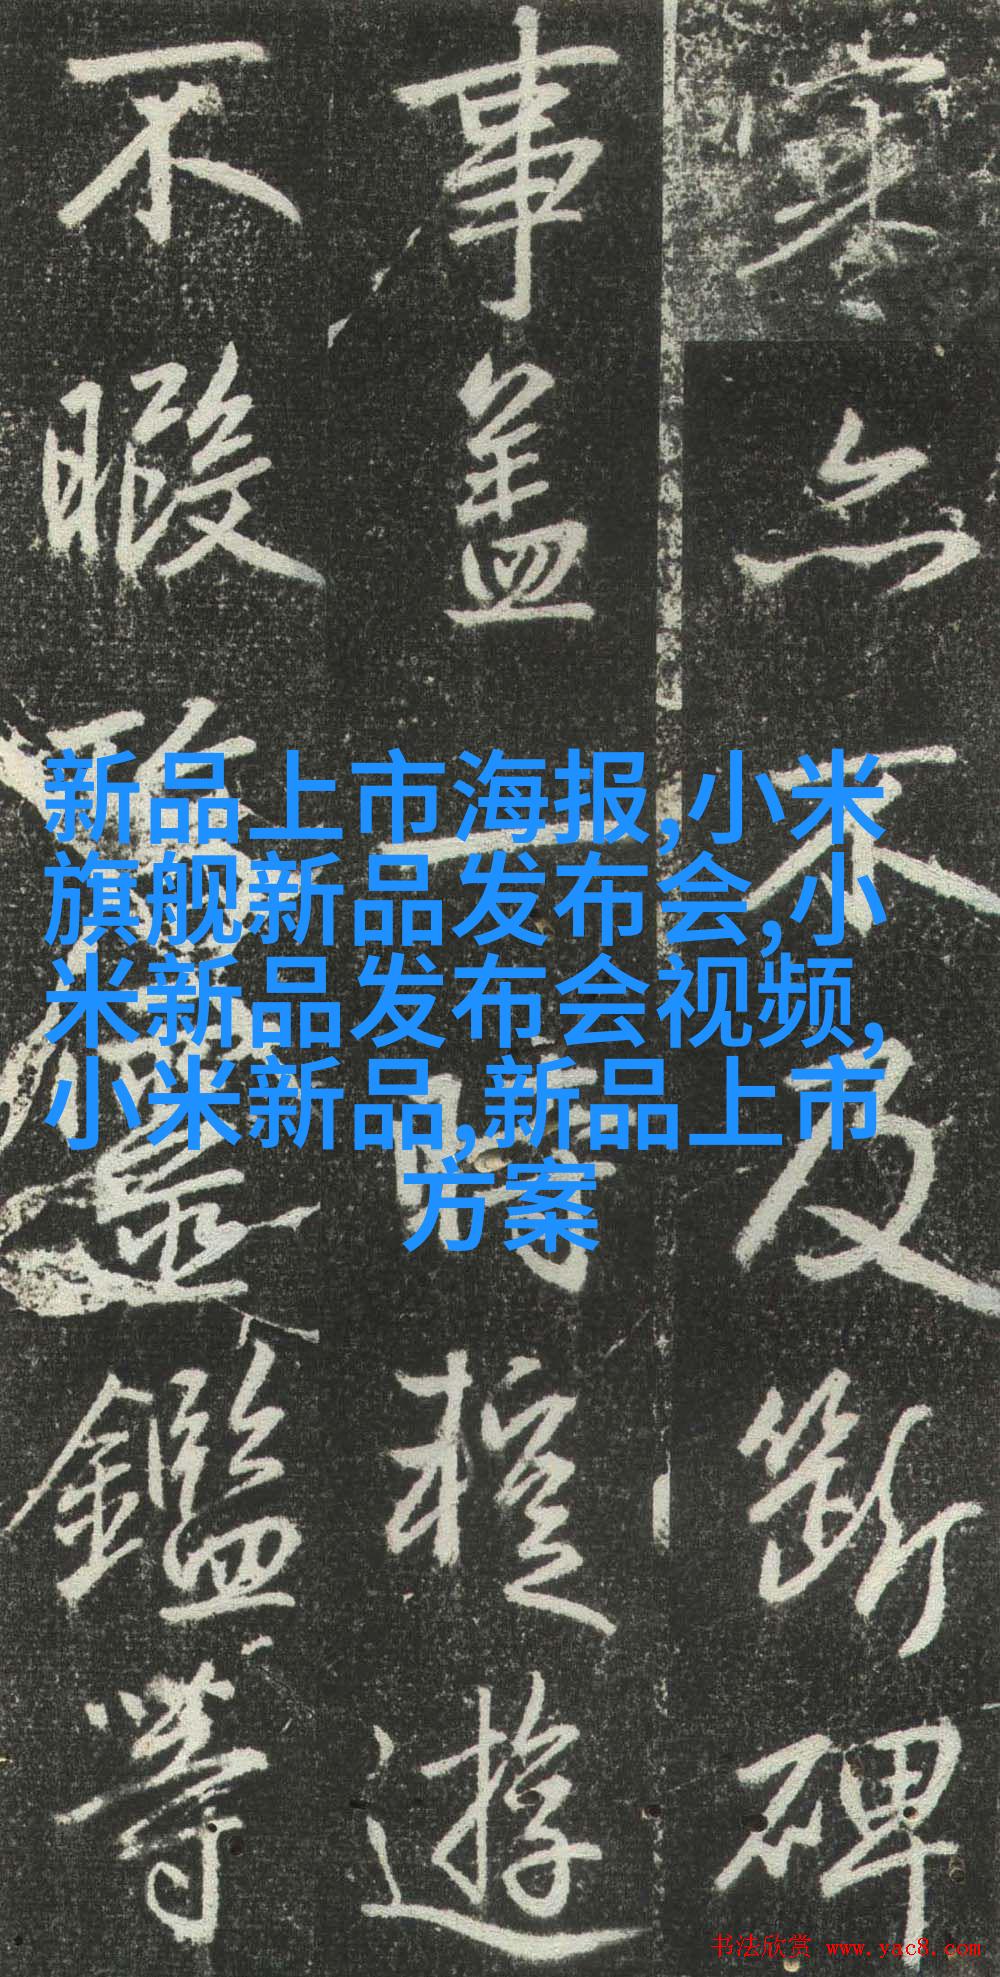 寒亦不及斷碑
事蓋一時授遊
不暇
鑑等
新品上市海报,小米
旗舰新品发布会,小
米新品发布会视频,
小米新品,新品上市
方案
书法欣赏 www.yac8.com